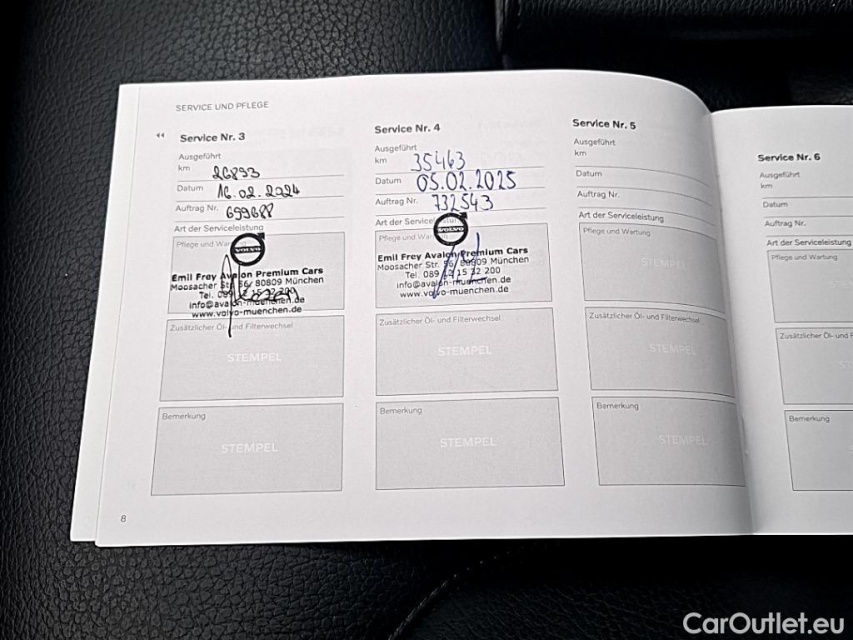 SERVICE UND PFLEGE
Service Nr. 3
Ausgeführt
km 26893
Datum 16.02.2024
Auftrag Nr. 699688
Art der Serviceleistung
Pflege und Wartung
VOLVO
Emil Frey Avalon Premium Cars
Moosacher Str. 56/ 80809 München
Tel. 089 / 2 15 32 200
info@avalon-muenchen.de
www.volvo-muenchen.de
Zusätzlicher Öl- und Filterwechsel
STEMPEL
Bemerkung
STEMPEL
8
Service Nr. 4
Ausgeführt
km 35463
Datum 05.02.2025
Auftrag Nr. 732543
Art der Serviceleistung
Pflege und Wartung
VOLVO
Emil Frey Avalon Premium Cars
Moosacher Str. 56/ 80809 München
Tel. 089 / 2 15 32 200
info@avalon-muenchen.de
www.volvo-muenchen.de
Zusätzlicher Öl- und Filterwechsel
STEMPEL
Bemerkung
STEMPEL
Service Nr. 5
Ausgeführt
km
Datum
Auftrag Nr.
Art der Serviceleistung
Pflege und Wartung
STEMPEL
Zusätzlicher Öl- und Filterwechsel
STEMPEL
Bemerkung
STEMPEL
Service Nr. 6
Ausgeführt
km
Datum
Auftrag Nr.
Art der Serviceleistung
Pflege und Wartung
Zusätzlicher Öl- und F
Bemerkung
CarOutlet.eu